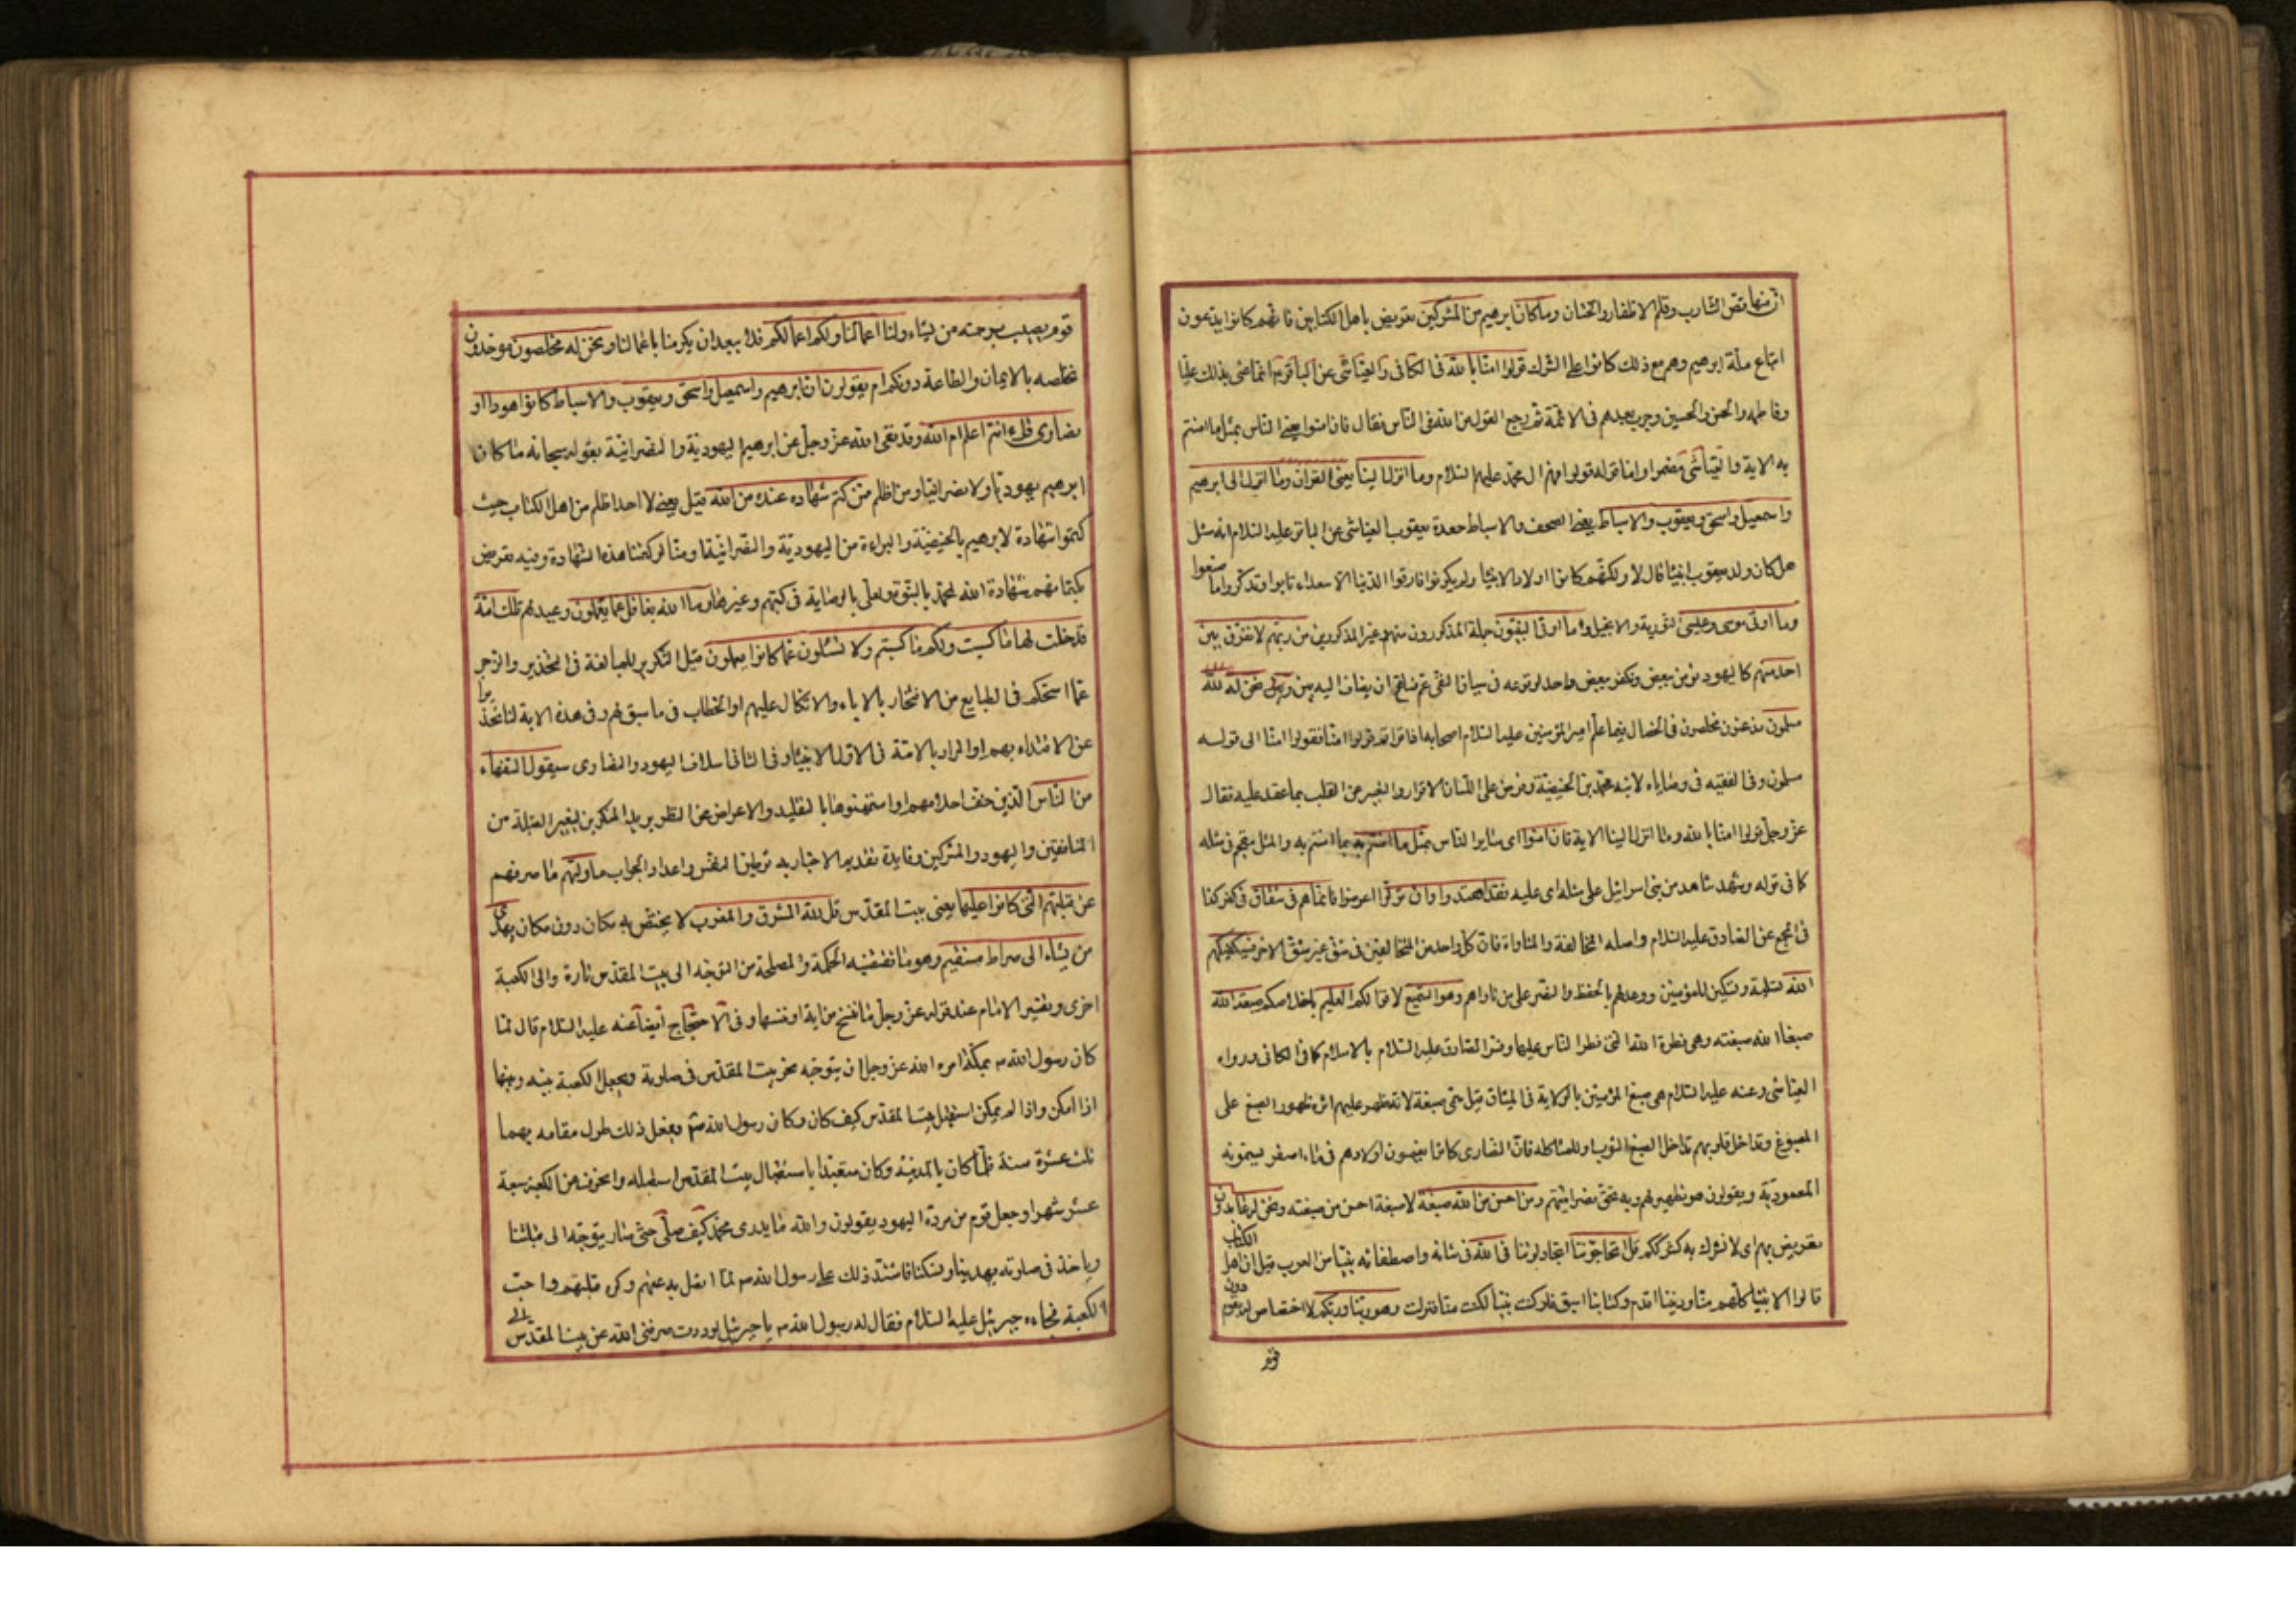 ان منها قص الشارب وقلم الاظفار والختان وما كان ابرهيم من المشركين تعريض باهل الكتابين فانهم كانوا يدعون
اتباع ملة ابرهيم وهم مع ذلك كانوا على الشرك قولوا امنا بالله فى الكافى والعياشى عن الباقر انما عنى بذلك عليا
وفاطمه والحسن والحسين وجرت بعدهم فى الائمة ثم رجع القول من الله فى الناس فقال فان امنوا يعنى الناس بمثل ما امنتم
به الاية والعياشى مضمرا واما قوله قولوا فهم ال محمد عليهم السلام وما انزل الينا يعنى القران وما انزل الى ابرهيم
واسمعيل واسحق ويعقوب والاسباط يعنى الصحف والاسباط حفدة يعقوب العياشى عن الباقر عليه السلام انه سئل
هل كان ولد يعقوب انبيا قال لا ولكنهم كانوا اولاد الانبيا ولم يكونوا فارقوا الدنيا الا سعداء تابوا وتذكروا ما صنعوا
وما اوتى موسى وعيسى التورية والانجيل وما اوتى النبيون جملة المذكورون منهم وغير المذكورين من ربهم لا نفرق بين
احد منهم كاليهود نؤمن ببعض ونكفر ببعض واحد لوقوعه فى سياق النفى عم فساغ ان يضاف اليه بين ونحن له لله
مسلمون مذعنون مخلصون فى الخصال فيما علم امير المؤمنين عليه السلام اصحابه اذا قراتم قولوا امنا فقولوا امنا الى قوله
مسلمون وفى الفقيه فى وصاياه لابنه محمد بن الحنيفية وفرض على اللسان الاقرار والتعبير عن القلب بما عقد عليه فقال
عز وجل قولوا امنا بالله وما انزل الينا الاية فان امنوا اى سائر الناس بمثل ما امنتم به بما امنتم به والمثل مقحم فى مثله
كما فى قوله وشهد شاهد من بنى اسرائيل على مثله اى عليه فقد اهتدوا وان تولوا اعرضوا فانما هم فى شقاق فى كفر كذا
فى المجمع عن الصادق عليه السلام واصله المخالفة والمناواة فان كل واحد من المتخالفين فى شق غير شق الاخر فسيكفيكهم
الله تسلية وتسكين للمؤمنين ووعد لهم بالحفظ والنصر على من ناواهم وهو السميع لاقوالكم العليم باخلاصكم صبغة الله
صبغنا الله صبغته وهى فطرة الله التى فطر الناس عليها وفسر الصادق عليه السلام بالاسلام كما فى الكافى ورواه
العياشى وعنه عليه السلام هى صبغ المؤمنين بالولاية فى الميثاق قيل سمى صبغة لانه ظهر عليهم اثره ظهور الصبغ على
المصبوغ وتداخل قلوبهم تداخل الصبغ الثوب او للمشاكلة فان النصارى كانوا يغمسون اولادهم فى ماء اصفر يسمونه
المعمودية ويقولون هو تطهير لهم وبه تحقق نصرانيتهم ومن احسن من الله صبغة لا صبغة احسن من صبغته ونحن له عابدون
تعريض بهم اى لا نشرك به كشرككم قل اتحاجوننا اتجادلوننا فى الله فى شانه واصطفائه نبيا من العرب قيل ان اهل الكتاب
قالوا الانبيا كلهم منا وديننا اقدم وكتابنا اسبق فلو كنت نبيا لكنت منا فنزلت وهو ربنا وربكم لا اختصاص له بقوم دون
قوم
قوم يصيب برحمته من يشاء ولنا اعمالنا ولكم اعمالكم فلا يبعد ان يكرمنا باعمالنا ونحن له مخلصون موحدون
نخلصه بالايمان والطاعة دونكم ام يقولون ان ابرهيم واسمعيل واسحق ويعقوب والاسباط كانوا هودا او
نصارى قل ءانتم اعلم ام الله وقد نفى الله عز وجل عن ابرهيم اليهودية والنصرانية بقوله سبحانه ما كان
ابرهيم يهوديا ولا نصرانيا ومن اظلم ممن كتم شهادة عنده من الله قيل يعنى لا احد اظلم من اهل الكتاب حيث
كتموا شهادة لابرهيم بالحنيفية والبراءة من اليهودية والنصرانية او منا لو كتمنا هذه الشهادة وفيه تعريض
بكتمانهم شهادة الله لمحمد بالنبوة ولعلى بالوصاية فى كتبهم وغيرها وما الله بغافل عما يعملون وعيد لهم تلك امة
قد خلت لها ما كسبت ولكم ما كسبتم ولا تسئلون عما كانوا يعملون قيل التكرير للمبالغة فى التحذير والزجر
عما استحكم فى الطبايع من الافتخار بالاباء والاتكال عليهم او الخطاب فى ما سبق لهم وفى هذه الاية لنا تحذيرا
عن الاقتداء بهم او المراد بالامة فى الاول الانبيا وفى الثانى اسلاف اليهود والنصارى سيقول السفهاء
من الناس الذين خف احلامهم او استمهنوها بالتقليد والاعراض عن النظر يريد المنكرين لتغيير القبلة من
المنافقين واليهود والمشركين وفايدة تقديم الاخبار به توطين النفس واعداد الجواب ما وليهم ما صرفهم
عن قبلتهم التى كانوا عليها يعنى بيت المقدس قل لله المشرق والمغرب لا يختص به مكان دون مكان يهدى
من يشاء الى صراط مستقيم وهو ما تقتضيه الحكمة والمصلحة من التوجه الى بيت المقدس تارة والى الكعبة
اخرى وتفسير الامام عند قوله عز وجل ما ننسخ من اية او ننسها وفى الاحتجاج ايضا عنه عليه السلام قال لما
كان رسول الله ص بمكة امره الله عز وجل ان يتوجه نحو بيت المقدس فى صلوته ويجعل الكعبة بينه وبينها
اذا امكن واذا لم يمكن استقبل بيت المقدس كيف كان وكان رسول الله ص يفعل ذلك طول مقامه بها
ثلث عشرة سنة فلما كان بالمدينة وكان متعبدا باستقبال بيت المقدس استقبله وانحرف عن الكعبة سبعة
عشر شهرا وجعل قوم من مردة اليهود يقولون والله ما يدرى محمد كيف صلى حتى صار يتوجه الى قبلتنا
وياخذ فى صلوته بهدينا ونسكنا فاشتد ذلك على رسول الله ص لما اتصل به عنهم وكره قبلتهم واحب
الكعبة فجاءه جبرئيل عليه السلام فقال له رسول الله ص يا جبرئيل لوددت صرفنى الله عن بيت المقدس الى